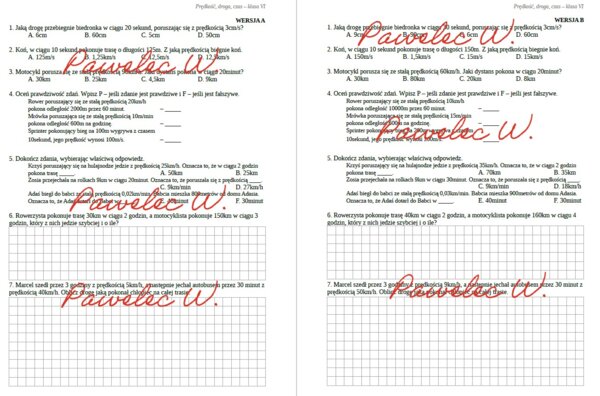 Prędkość, droga, czas – klasa VI
WERSJA A
1. Jaką drogę przebiegnie biedronka w ciągu 20 sekund, poruszając się z prędkością 3cm/s?
A. 6cm B. 60cm C. 5cm D. 60m
2. Koń, w ciągu 10 sekund pokonuje trasę o długości 125m. Z jaką prędkością biegnie koń.
A. 125m/s B. 1,25km/s C. 12,5m/s D. 12,5km/s
3. Motocykl porusza się ze stałą prędkością 90km/h. Jaki dystans pokona w ciągu 20minut?
A. 30km B. 25km C. 4,5km D. 9km
4. Oceń prawdziwość zdań. Wpisz P – jeśli zdanie jest prawdziwe i F – jeśli jest fałszywe.
Rower poruszający się ze stałą prędkością 20km/h
pokona odległość 2000m przez 60 minut. – _____
Mrówka poruszająca się ze stałą prędkością 10m/min
pokona odległość 600m na godzinę. – _____
Sprinter pokonujący bieg na 100m wygrywa z czasem
10sekund, jego prędkość wynosi 100m/s. – _____
5. Dokończ zdania, wybierając właściwą odpowiedź.
Krzyś poruszający się na hulajnodze jedzie z prędkością 25km/h. Oznacza to, że w ciągu 2 godzin
pokona trasę _____. A. 50km B. 25km
Zosia przejechała na rolkach 9km w ciągu 20minut. Oznacza to, że poruszała się z prędkością ____.
C. 9km/min D. 27km/h
Adaś biegł do babci ze stałą prędkością 0,02km/min. Babcia mieszka 800metrów od domu Adasia.
Oznacza to, że Adaś dotarł do Babci w _____. E. 40minut F. 30minut
6. Rowerzysta pokonuje trasę 30km w ciągu 2 godzin, a motocyklista pokonuje 150km w ciągu 3
godzin, który z nich jedzie szybciej i o ile?
7. Marcel szedł przez 3 godziny z prędkością 5km/h, a następnie jechał autobusem przez 30 minut z
prędkością 40km/h. Oblicz drogę jaką pokonał chłopiec na całej trasie.
Pawelec W.
Pawelec W.
Pawelec W.
Prędkość, droga, czas – klasa VI
WERSJA B
1. Jaką drogę przebiegnie biedronka w ciągu 30 sekund, poruszając się z prędkością 3cm/s?
A. 9cm B. 90cm C. 5cm D. 60cm
2. Koń, w ciągu 10 sekund pokonuje trasę o długości 150m. Z jaką prędkością biegnie koń.
A. 150m/s B. 1,5km/s C. 15m/s D. 15km/s
3. Motocykl porusza się ze stałą prędkością 60km/h. Jaki dystans pokona w ciągu 20minut?
A. 30km B. 80km C. 20km D. 8km
4. Oceń prawdziwość zdań. Wpisz P – jeśli zdanie jest prawdziwe i F – jeśli jest fałszywe.
Rower poruszający się ze stałą prędkością 10km/h
pokona odległość 10000m przez 60 minut. – _____
Mrówka poruszająca się ze stałą prędkością 15m/min
pokona odległość 600m na godzinę. – _____
Sprinter pokonujący bieg na 200m wygrywa z czasem
10sekund, jego prędkość wynosi 100m/s. – _____
5. Dokończ zdania, wybierając właściwą odpowiedź.
Krzyś poruszający się na hulajnodze jedzie z prędkością 35km/h. Oznacza to, że w ciągu 2 godzin
pokona trasę _____. A. 70km B. 35km
Zosia przejechała na rolkach 9km w ciągu 30minut. Oznacza to, że poruszała się z prędkością ____.
C. 9km/min D. 18km/h
Adaś biegł do babci ze stałą prędkością 0,03km/min. Babcia mieszka 900metrów od domu Adasia.
Oznacza to, że Adaś dotarł do Babci w _____. E. 40minut F. 30minut
6. Rowerzysta pokonuje trasę 40km w ciągu 2 godzin, a motocyklista pokonuje 160km w ciągu 4
godzin, który z nich jedzie szybciej i o ile?
7. Marcel szedł przez 3 godziny z prędkością 9km/h, a następnie jechał autobusem przez 30 minut z
prędkością 50km/h. Oblicz drogę jaką pokonał chłopiec na całej trasie.
Pawelec W.
Pawelec W.
Pawelec W.